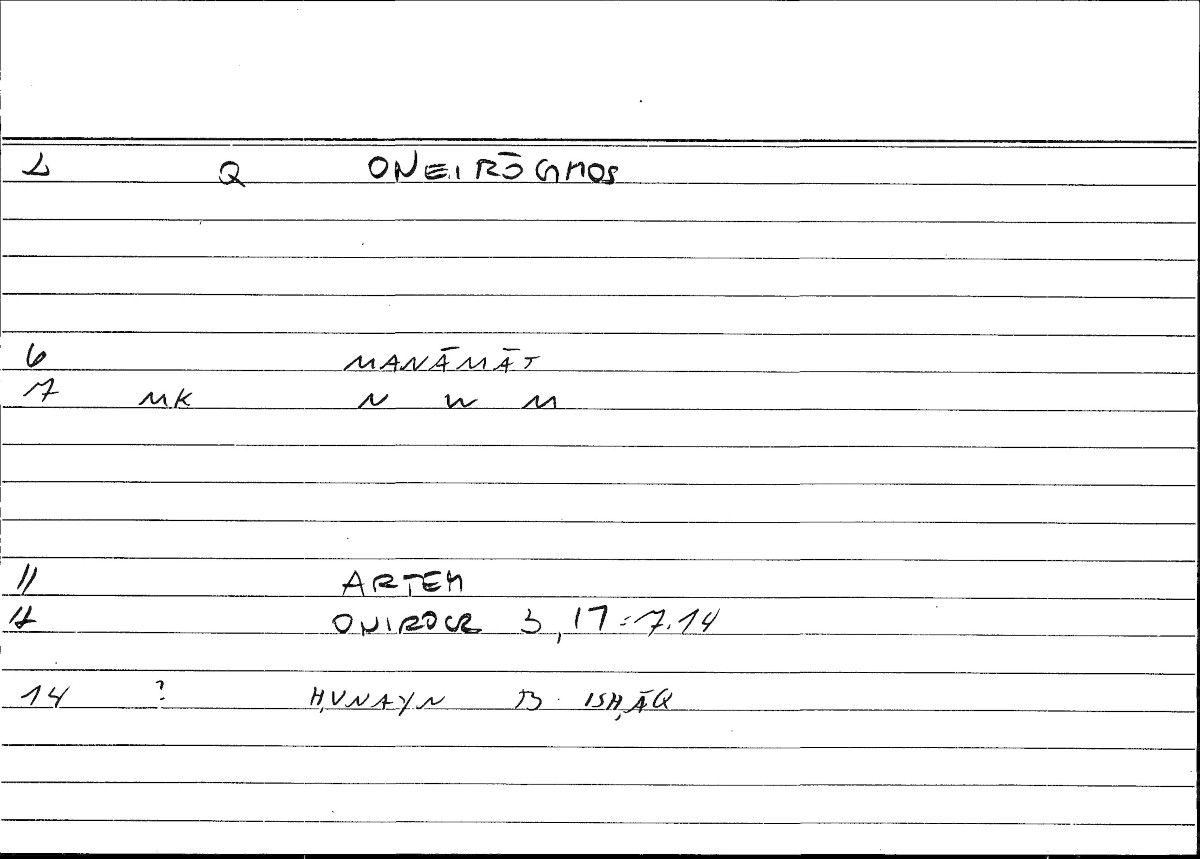 1 Q ONEIRŌGMOS
6 MANĀMĀT
7 MK N W M
11 ARTEM
12 ONIROCR 3,17:7.14
14 ? ḤUNAYN B. ISḤĀQ